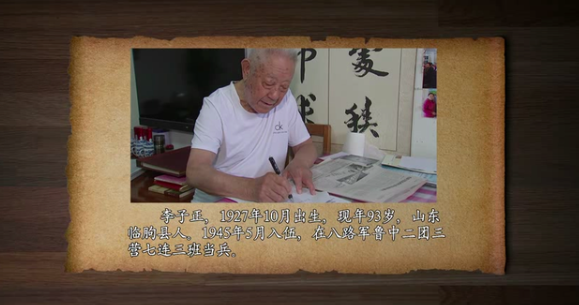 李子正，1927年10月出生，现年93岁，山东
临朐县人。1945年5月入伍，在八路军鲁中二团三
营七连三班当兵。